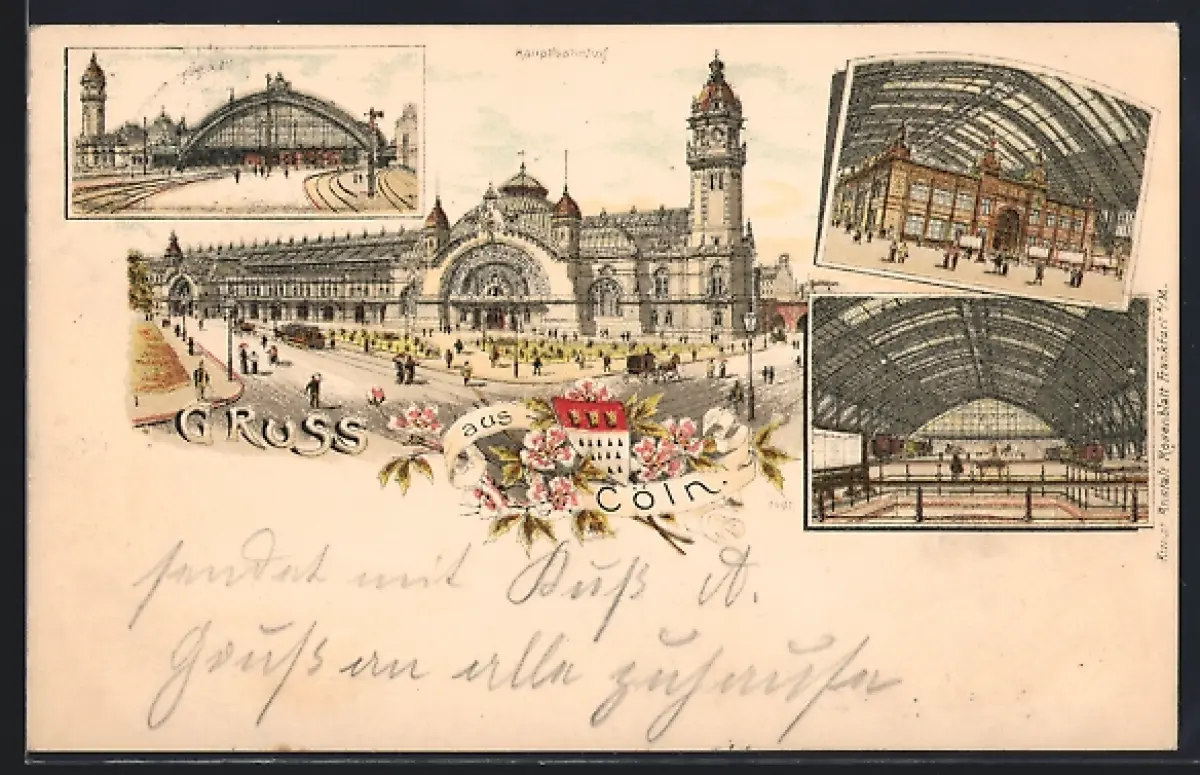 Hauptbahnhof
GRUSS
aus
Cöln.
Kunst-Anstalt Rosenblatt Frankfurt a/M.
sendet mit Kuß A.
Gruß an alle zuhause.